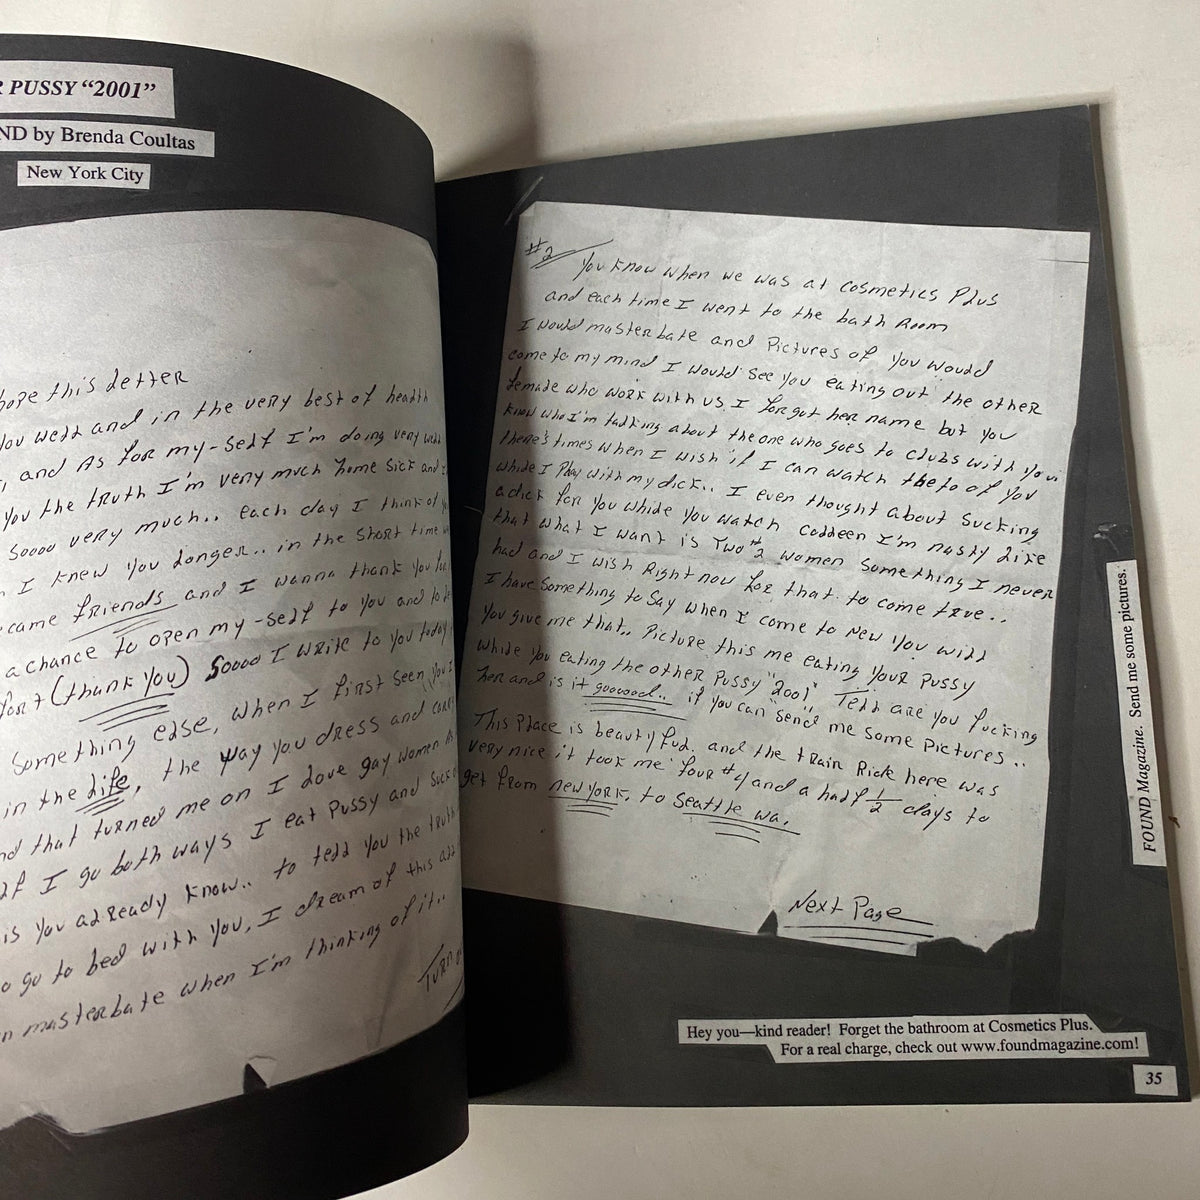 PUSSY “2001”
by Brenda Coultas
New York City
hope this Letter
you well and in the very best of health
and As for my-self I'm doing very well
you the truth I'm very much home sick and
Soooo very much.. each day I think of
I knew you Longer.. in the short time
came friends and I wanna thank you for
a chance to open my-self to you and to
for + (thank you) Soooo I write to you today
Something else, when I first seen you
in the Life, the way you dress and
that turned me on I Love gay women
I go both ways I eat pussy and suck
is you already know.. to tell you the truth
go to bed with you, I dream of this all
masterbate when I'm thinking of it..
Turn
#2
You know when we was at cosmetics Plus
and each time I went to the bath Room
I would masterbate and Pictures of you would
come to my mind I would see you eating out the other
female who work with us. I forgot her name but you
know who I'm talking about the one who goes to clubs with you
there's times when I wish if I can watch the to of you
while I Play with my dick.. I even thought about Sucking
a dick for you while you watch Colleen I'm nasty Like
that what I want is Two #2 women something I never
had and I wish Right now for that to come true..
I have something to Say when I come to New you will
you give me that.. Picture this me eating Your Pussy
while you eating the other Pussy "2001" Tell are you fucking
her and is it goooood.. if you can send me some Pictures..
This Place is beautyful. and the train Ride here was
very nice it took me four #4 and a half 1/2 days to
get from new york, to Seattle wa.
Next Page
FOUND Magazine. Send me some pictures.
Hey you—kind reader! Forget the bathroom at Cosmetics Plus.
For a real charge, check out www.foundmagazine.com!
35